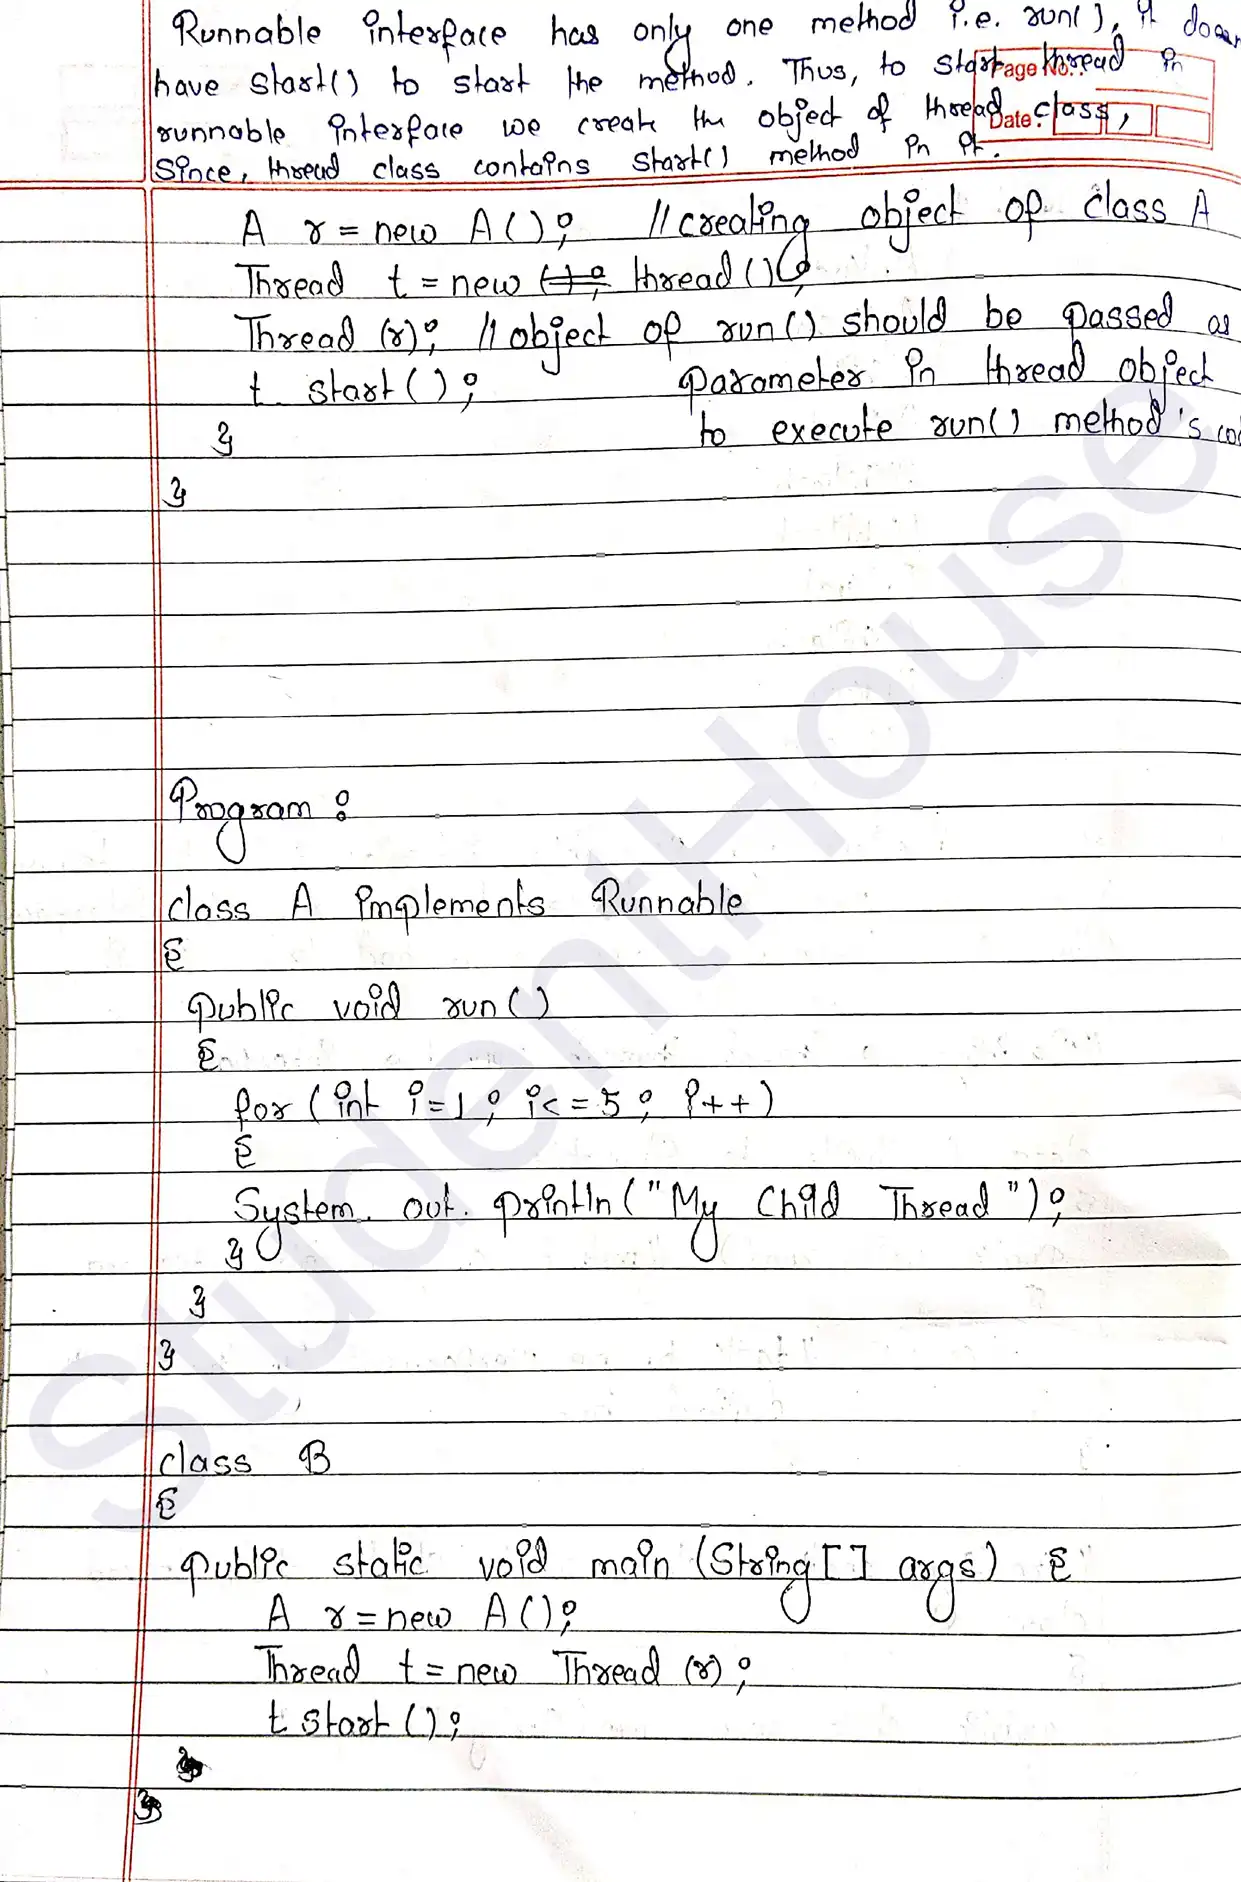 Runnable interface has only one method i.e. run(), it
have start() to start the method. Thus, to start thread in
Page No.:
runnable interface we create the object of thread class,
Date:
Since, thread class contains start() method in it.
A r = new A(); // creating object of class A
Thread t = new thread();
Thread (r); // object of run() should be passed as
t. start(); parameter in thread object
to execute run() method's
}
}
Program :
class A implements Runnable
{
public void run()
{
for (int i=1; i<=5; i++)
{
System. out. println("My Child Thread");
}
}
}
class B
{
public static void main (String[] args) {
A r = new A();
Thread t = new Thread (r);
t start();
}
}
StudentHouse